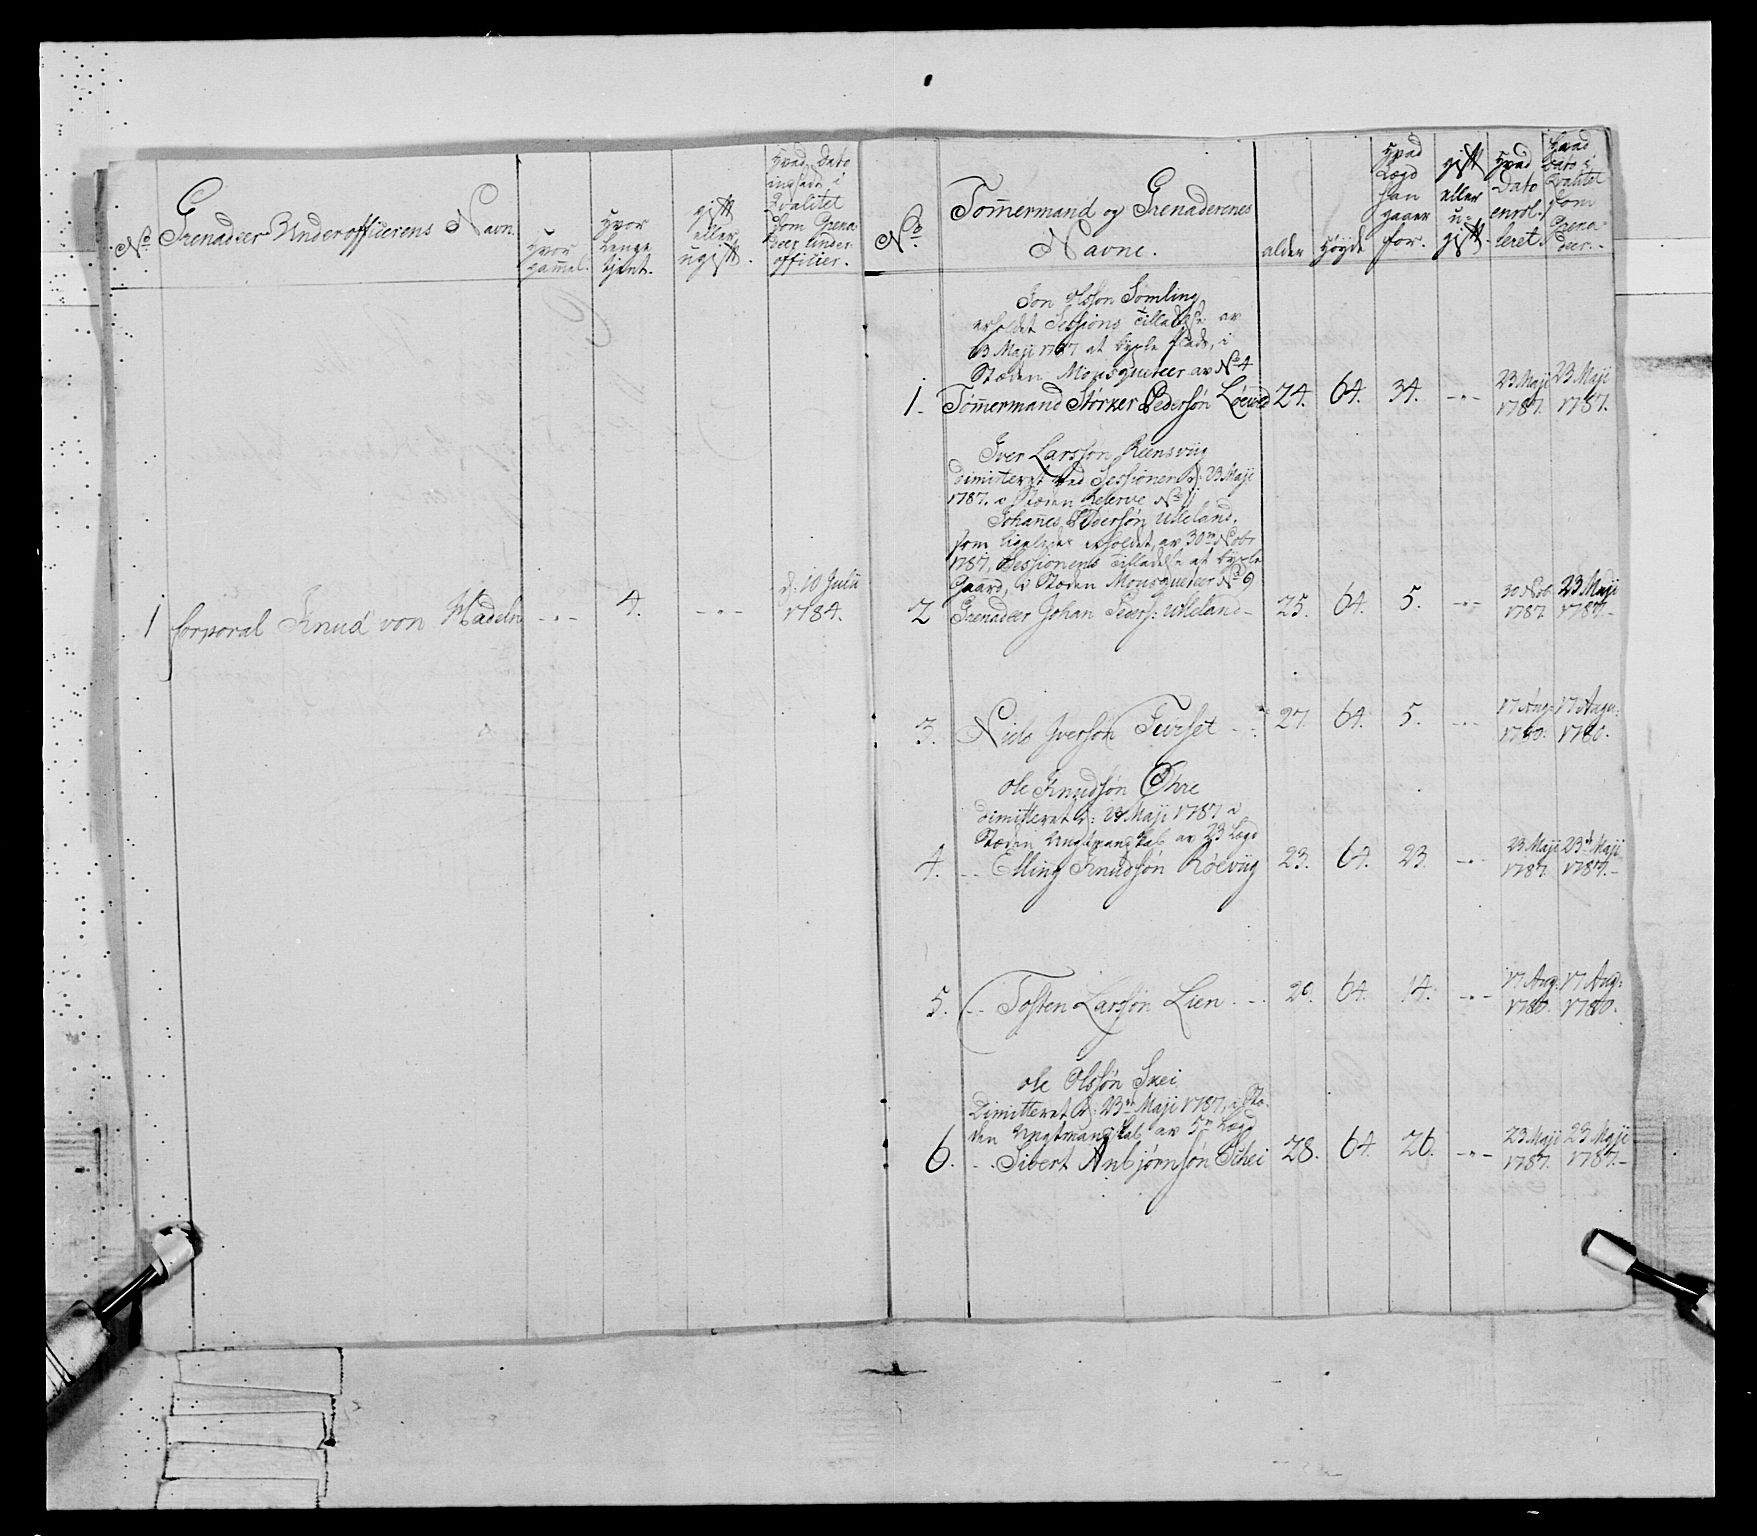 No.
Grenadeer Underofficerens Navn
Hvor gammel.
Hvor lenge tjent.
gift eller ugift.
Hvad Dato indsadt i Qvalitet som Grenadeer Under officier.
1 Corporal Knud von Hadeln - " - 4. - " - d: 10 Julii 1784.
No.
Tømmermand og Grenaderenes Navne.
alder
Høyde
Hvad Lægd han gaaer for.
gift eller u-gift.
Hvad Dato enrolleret.
Hvad Dato i Qvalitet som Grenadeer.
Jon Olsson Sømling
erholdet Sessions Tilladelse av
23 Maji 1787 at byxle Plads, i
Stæden Mousqueteer av No 4
1. Tømmermand Størker Pedersøn 24. 64. 34. - " - 23 Maji 1787. 23 Maji 1787.
Iver Larsson Reensviig
dimitteret ved Sessionen d: 23 Maji
1787. Stæden Reserve No
Johannes Pedersøn
som ligeledes erholdet av 30 Nobr
1787, Sessionens Tilladelse at byxle
Gaard, i Stæden Mousqueteer No 9
2 Grenadeer Johan Peders: 25. 64. 5. - " - 30 Nob: 1787. 23 Maji 1787.
3. Niels Iversøn 27. 64. 5. - " - 17 Aug: 1780. 17 Augu: 1780.
Ole Knudsøn Øhre
dimitteret d: 23 Maji 1787
Stæden Ungtmandskab av 23 Lægd
4. - - Elling Knudsøn Roeviig 23. 64. 23. - " - 23 Maji 1787. 23d Maji 1787.
5. - - Tosten Larssøn Lien 29. 64. 14. - " - 17 Aug: 1780. 17 Aug: 1780.
Ole Olssøn Skei
Dimitteret d: 23de Maji 1787, Stæ-
den Ungtmandskab av 5te Lægd
6. - - Sivert Anbjørnsøn Schei 28. 64. 26. - " - 23 Maji 1787. 23 Maji 1787.